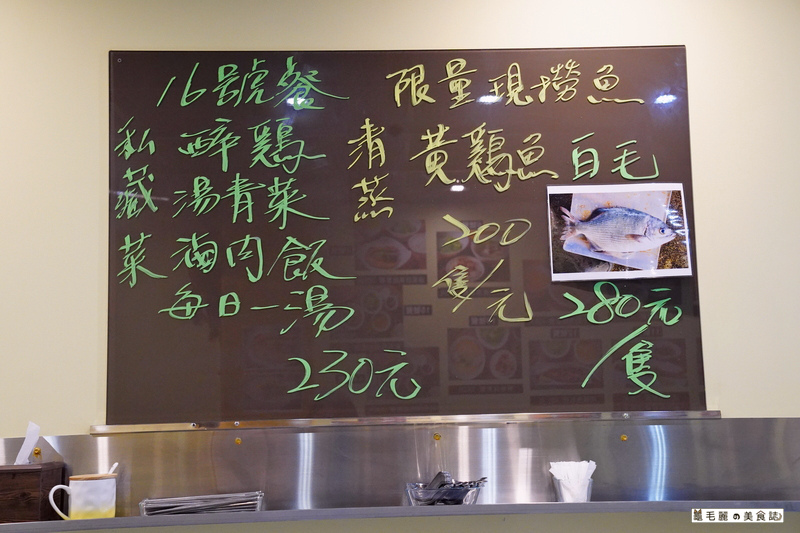 16號餐
私藏菜
醉鷄
湯青菜
滷肉飯
每日一湯
230元
限量現撈魚
清蒸
黃鷄魚
200
隻/元
白毛
280元
/隻
毛麗の美食誌